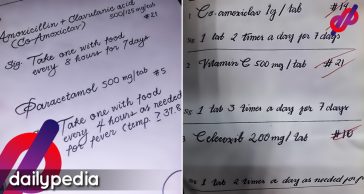 Amoxicillin + Clavulanic acid
(Co-Amoxiclav) 500/125 mg/tab
#21
Sig. Take one with food
every 8 hours for 7days
Paracetamol 500 mg/tab #5
Take one with food
every 4 hours as needed
for fever (temp. ≥ 37.8
dailypedia
1 Co-amoxiclav 1g/tab #14
1 tab 2 times a day for 7 days
2 Vitamin C 500 mg/tab #21
1 tab 3 times a day for 7 days
3 Celecoxib 200mg/tab #10
1 tab 2 times a day as needed for